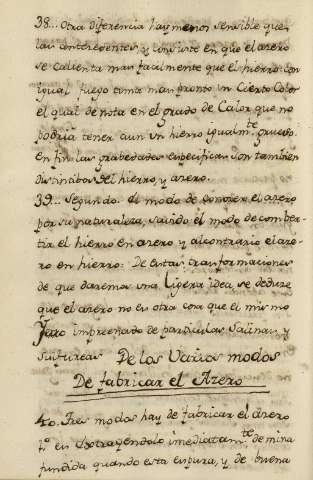 38... Otra diferencia hay menos sensible que
las antecedentes, y consiste en que el azero
se calienta mas facilmente que el hierro: con
igual fuego toma mas pronto un Cierto Color
el qual denota en el grado de Calor que no
podria tener aun un hierro igualm.te grueso.
En fin las grabedades especificas son tambien
distintibos del hierro, y azero.
39... Segundo. el modo de conocer el azero
por su naturaleza, savido el modo de comber-
tir el hierro en azero, y al contrario el aze-
ro en hierro: De estas transformaciones
de que daremos una Ligera idea, se deduce
que el azero no es otra cosa que el mismo
Yerro impreñado de particulas Salinas, y
sulfureas De los Varios modos
De fabricar el Azero
40. Tres modos hay de fabricar el azero
1.º es extrayendolo imediatam.te de mina
fundida quando esta es pura, y de buena